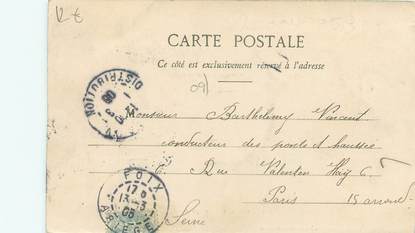 CARTE POSTALE
Ce côté est exclusivement réservé à l'adresse
09
DISTRIBUTION
Monsieur Barthelemy Vincent
conducteur des ponts et chaussées
6, Rue Valentin Haÿ 6
Paris 15 arrond
Seine
FOIX
17
13
ARIEGE